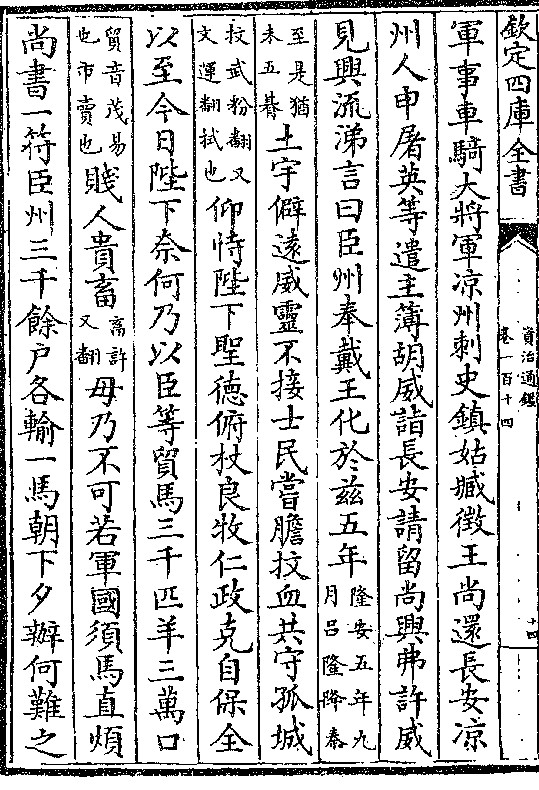 欽定四庫全書
資治通鑑
卷一百十四
十四
軍事車騎大將軍凉州刺史鎮姑臧徵王尚還長安凉
州人申屠英等遣主簿胡威詣長安請留尚興弗許威
見興流涕言曰臣州奉戴王化於兹五年隆安五年九
月吕隆降秦
至是猶
未五朞土宇僻逺威靈不接士民嘗膽抆血共守孤城
抆武粉翻又
文運翻拭也仰恃陛下聖徳俯杖良牧仁政克自保全
以至今日陛下奈何乃以臣等貿馬三千匹羊三萬口
貿音茂易
也市賣也賤人貴畜畜許
又翻毋乃不可若軍國須馬直煩
尚書一符臣州三千餘户各輸一馬朝下夕辦何難之